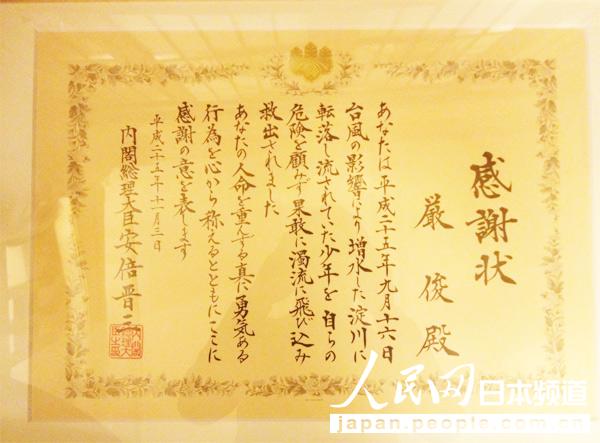 感謝状
厳俊殿
あなたは平成二十五年九月十六日
台風の影響により増水した淀川に
転落し流されていた少年を自らの
危険を顧みず果敢に濁流に飛び込み
救出されました
あなたの人命を重んずる真に勇気ある
行為を心から称えるとともにここに
感謝の意を表します
平成二十五年十一月三日
内閣総理大臣安倍晋三
人民网日本频道
japan.people.com.cn